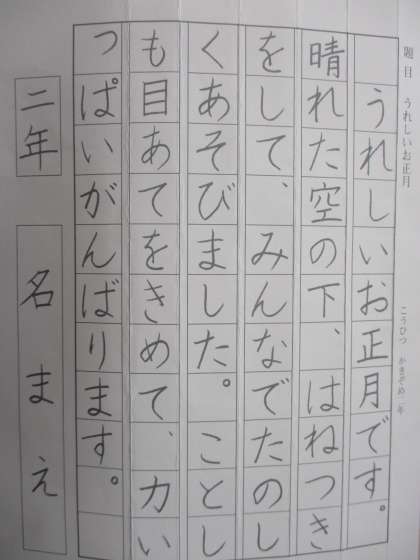 題目 うれしいお正月
こうひつ かきぞめ 二年
うれしいお正月です。
晴れた空の下、はねつき
をして、みんなでたのし
くあそびました。ことし
も目あてをきめて、力い
っぱいがんばります。
二年 名まえ